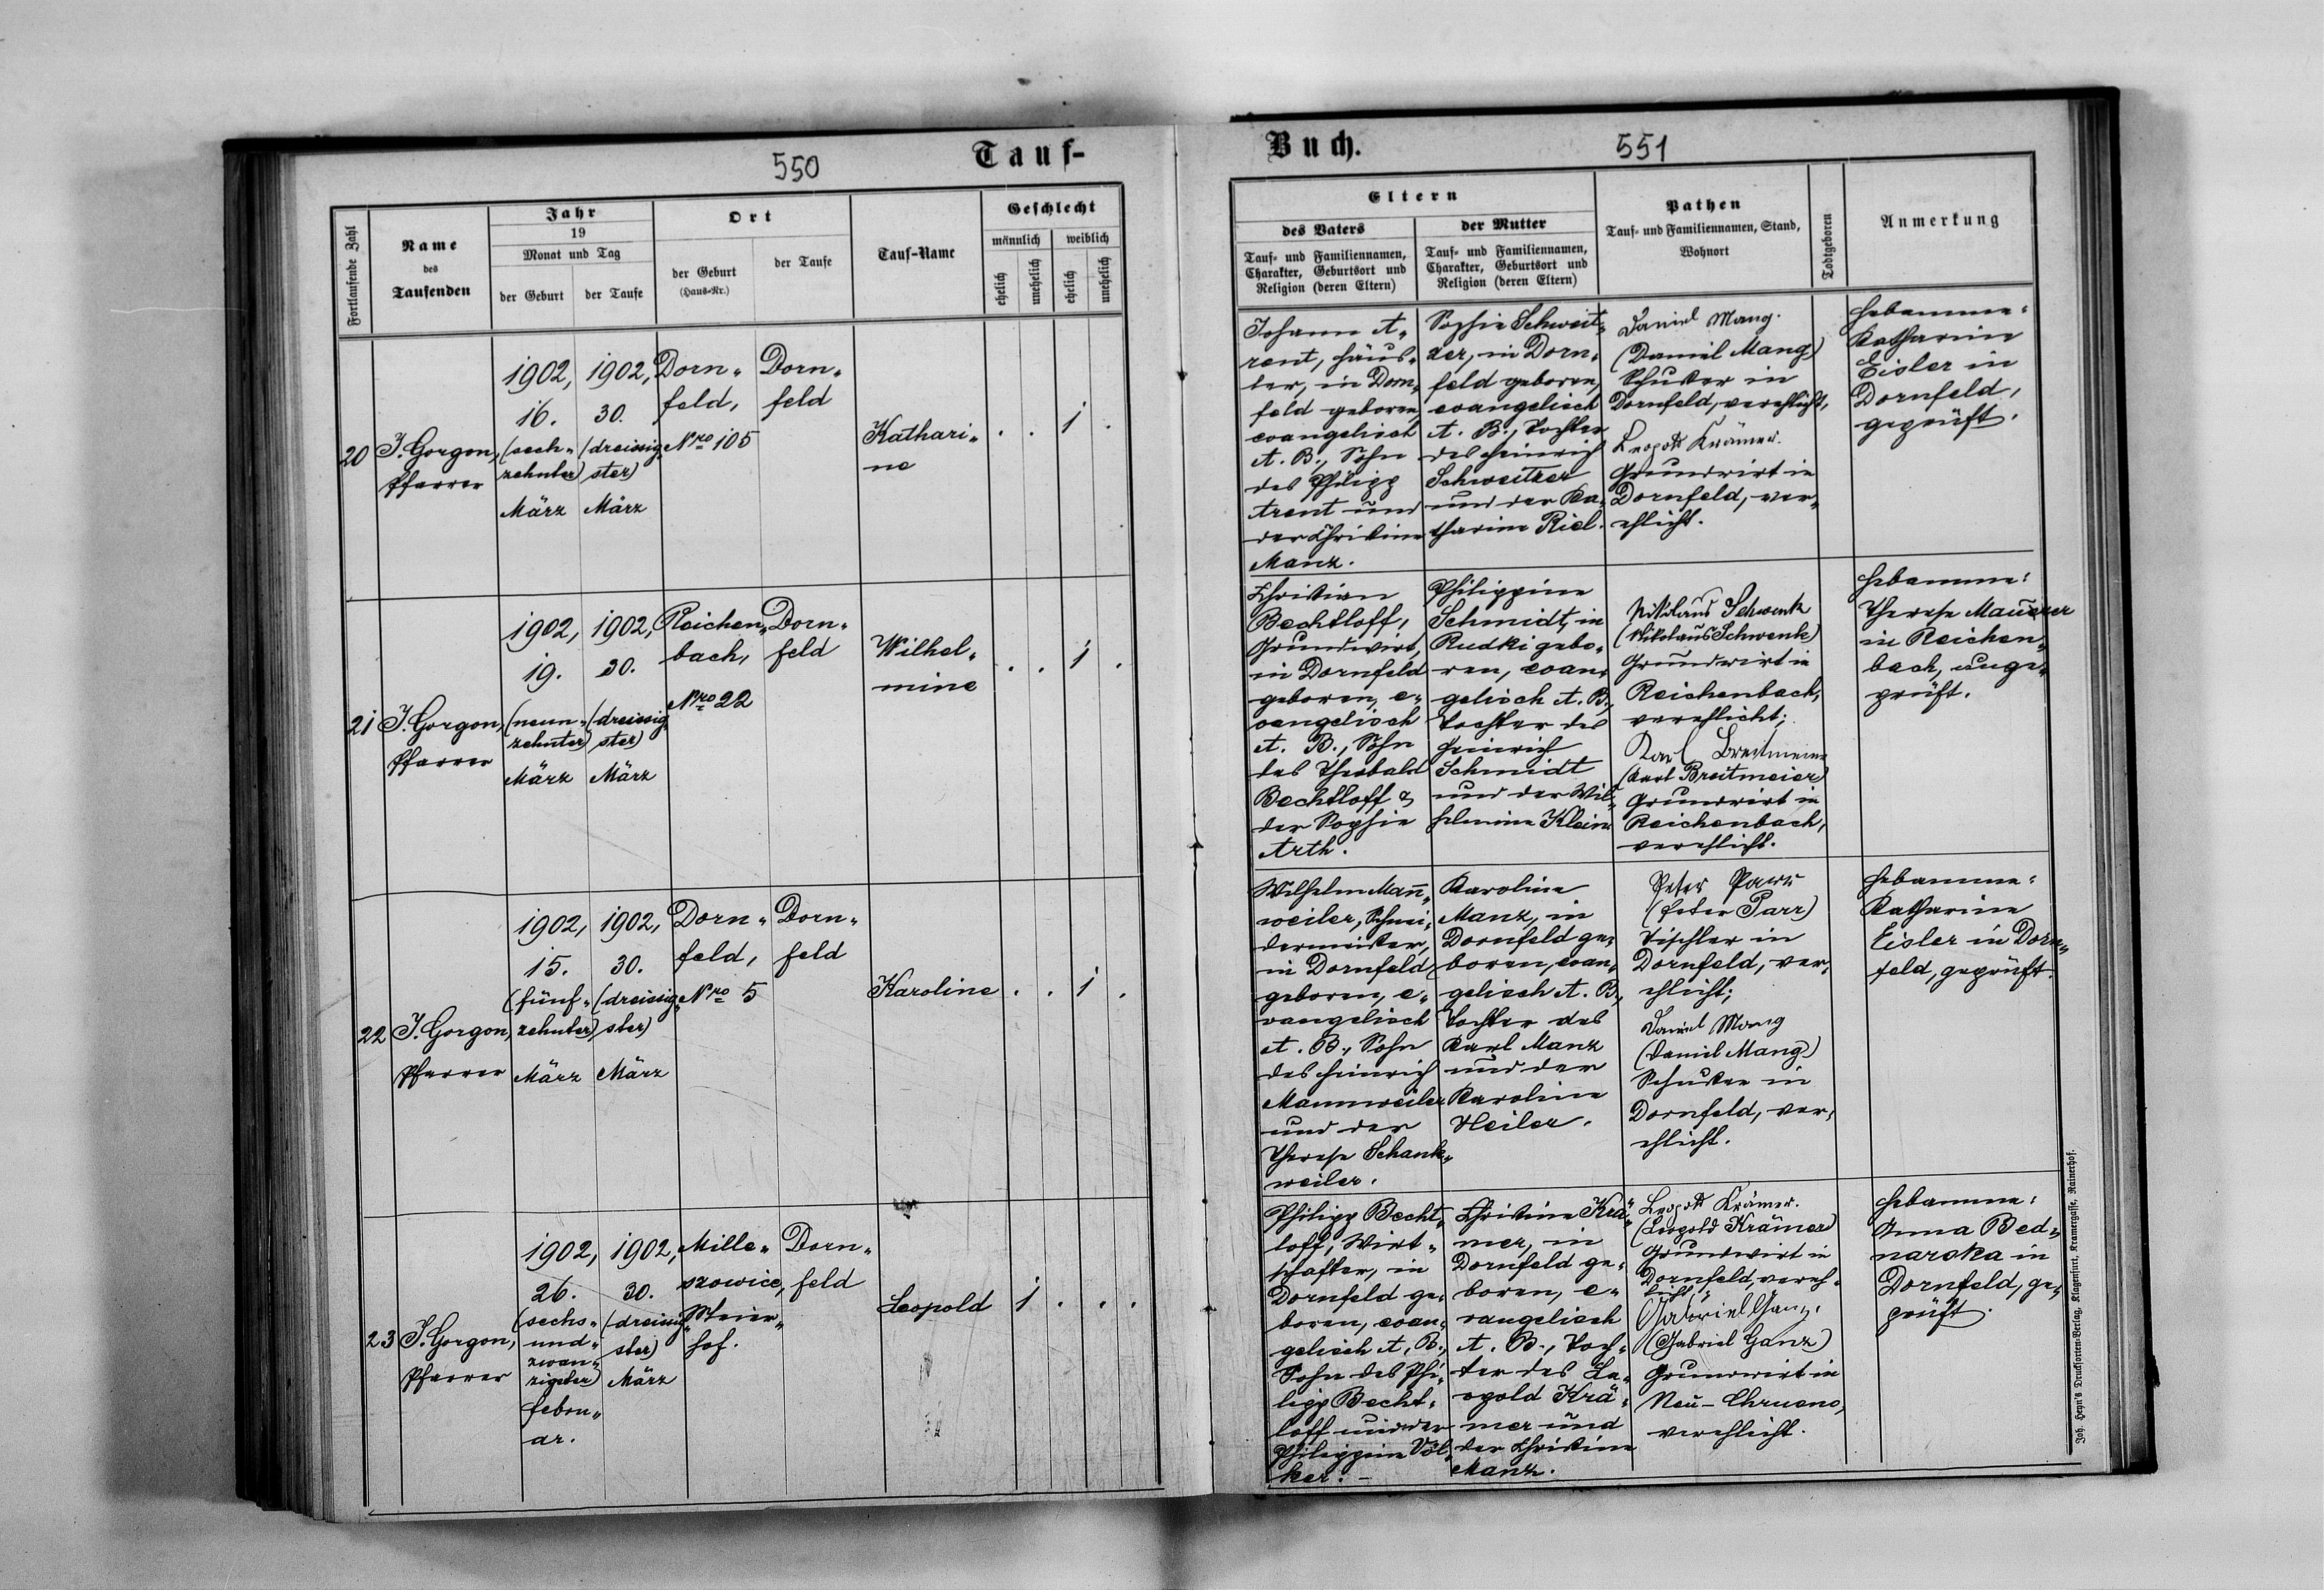 550
Tauf-
Fortlaufende Zahl
Name
des
Taufenden
Jahr
19
Monat und Tag
der Geburt
der Taufe
Ort
der Geburt
(Haus-Nr.)
der Taufe
Tauf-Name
Geschlecht
männlich
weiblich
ehelich
unehelich
ehelich
unehelich
20
J. Gorgon,
Pfarrer
1902,
16.
(sech-
zehnter)
März
1902,
30.
(dreissig-
ster)
März
Dorn-
feld,
Nro 105
Dorn-
feld
Kathari-
ne
. . 1 .
21
J. Gorgon,
Pfarrer
1902,
19.
(neun-
zehnter)
März
1902,
30.
(dreissig-
ster)
März
Reichen-
bach,
Nro 22
Dorn-
feld
Wilhel-
mine
. . 1 .
22
J. Gorgon,
Pfarrer
1902,
15.
(fünf-
zehnter)
März
1902,
30.
(dreissig-
ster)
März
Dorn-
feld,
Nro 5
Dorn-
feld
Karoline
. . 1 .
23
J. Gorgon,
Pfarrer
1902,
26.
(sechs-
und-
zwan-
zigster)
Febru-
ar.
1902,
30.
(dreissig-
ster)
März
Mille-
szowice,
Meier-
hof.
Dorn-
feld
Leopold
1 . . .
Buch.
551
Eltern
des Vaters
Tauf- und Familiennamen,
Charakter, Geburtsort und
Religion (deren Eltern)
der Mutter
Tauf- und Familiennamen,
Charakter, Geburtsort und
Religion (deren Eltern)
Pathen
Tauf- und Familiennamen, Stand,
Wohnort
Todtgeboren
Anmerkung
Johann A-
rent, Häus-
ler, in Dorn-
feld geboren,
evangelisch
A. B., Sohn
des Philipp
Arent und
der Christine
Manz.
Sophie Schweit-
zer, in Dorn-
feld geboren,
evangelisch
A. B., Tochter
des Heinrich
Schweitzer
und der Ka-
tharine Riel.
Daniel Mang.
(Daniel Mang)
Schuster in
Dornfeld, verehlicht,
Leopold Krämer.
Grundwirt in
Dornfeld, ver-
ehlicht.
Hebamme:
Katharine
Eisler in
Dornfeld,
geprüft.
Christian
Bechtloff,
Grundwirt,
in Dornfeld
geboren, e-
vangelisch
A. B., Sohn
des Theobald
Bechtloff &
der Sophie
Arth.
Philippine
Schmidt, in
Rudki gebo-
ren, evan-
gelisch A. B.,
Tochter des
Heinrich
Schmidt
und der Wil-
helmine Klein
Nikolaus Schwenk
(Nikolaus Schwenk)
Grundwirt in
Reichenbach,
verehlicht;
Karl Breitmeier
(Karl Breitmeier)
Grundwirt in
Reichenbach,
verehlicht.
Hebamme:
Therese Mauerer
in Reichen-
bach, unge-
prüft.
Wilhelm Mann-
weiler, Schnei-
dermeister,
in Dornfeld
geboren, e-
vangelisch
A. B., Sohn
des Heinrich
Mannweiler
und der
Therese Schank-
weiler.
Karoline
Manz, in
Dornfeld ge-
boren, evan-
gelisch A. B.,
Tochter des
Karl Manz
und der
Karoline
Heiler.
Peter Parr
(Peter Parr)
Tischler in
Dornfeld, ver-
ehlicht;
Daniel Mang
(Daniel Mang)
Schuster in
Dornfeld, ver-
ehlicht.
Hebamme:
Katharine
Eisler in Dorn-
feld, geprüft.
Philipp Becht-
loff, Wirt-
schafter, in
Dornfeld ge-
boren, evan-
gelisch A. B.,
Sohn des Phi-
lipp Becht-
loff und der
Philippine Völ-
ker. -
Christine Krä-
mer, in
Dornfeld ge-
boren, e-
vangelisch
A. B., Toch-
ter des Le-
opold Krä-
mer und
der Christine
Manz.
Leopold Krämer.
(Leopold Krämer)
Grundwirt in
Dornfeld, vereh-
licht;
Gabriel Ganz.
(Gabriel Ganz)
Grundwirt in
Neu-Chrusno,
verehlicht.
Hebamme:
Anna Bed-
narska in
Dornfeld, ge-
prüft.
Joh. Heyn's Drucksorten-Verlag, Klagenfurt, Kramergasse, Rainerhof.